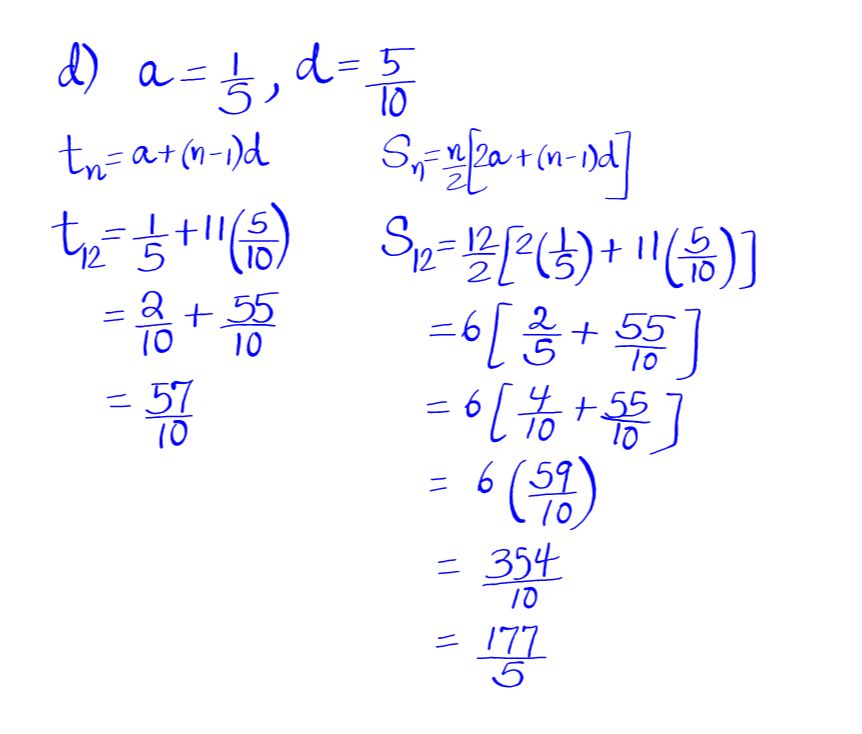 d) a = 1/5, d = 5/10
tₙ = a + (n-1)d
t₁₂ = 1/5 + 11(5/10)
= 2/10 + 55/10
= 57/10
Sₙ = n/2[2a + (n-1)d]
S₁₂ = 12/2[2(1/5) + 11(5/10)]
= 6[2/5 + 55/10]
= 6[4/10 + 55/10]
= 6(59/10)
= 354/10
= 177/5